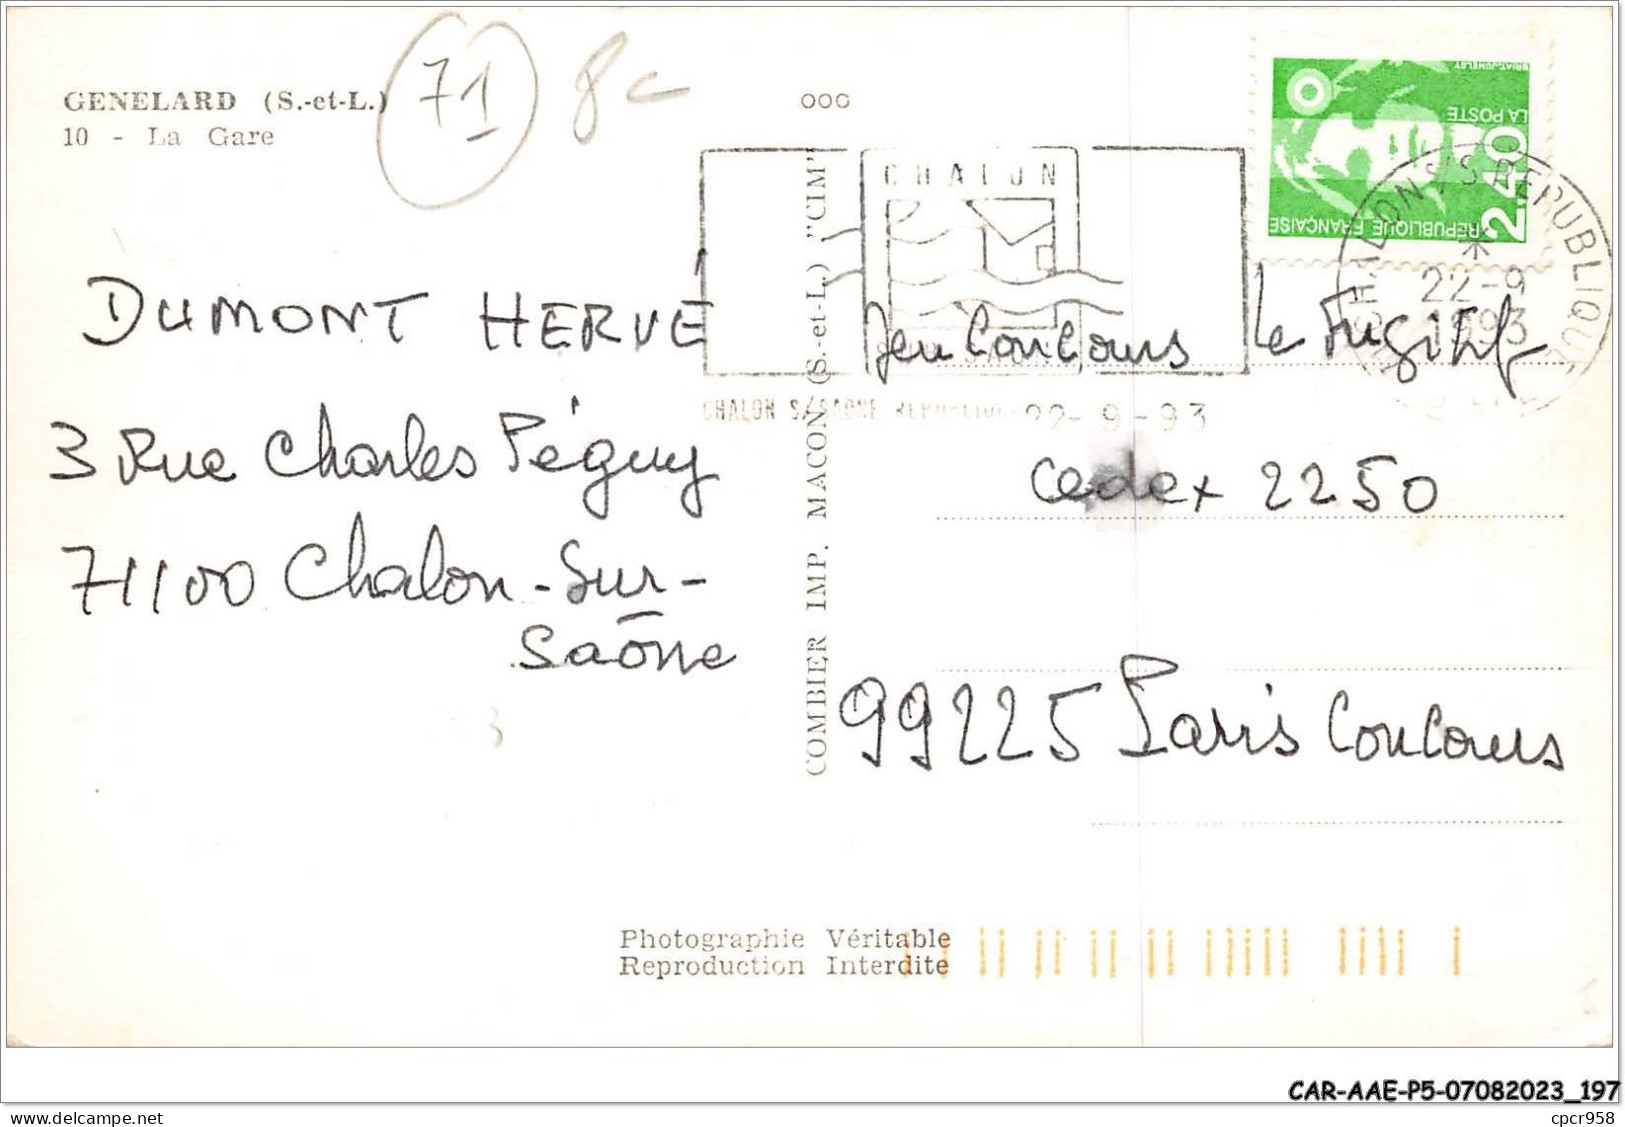 GENELARD (S.-et-L.)
10 - La Gare
71
8c
000
BRIAT.JUMELET
LA POSTE
2,40
REPUBLIQUE FRANÇAISE
CHALON
CHALON S/SAONE REPUBLIQUE 22-9-93
CHALON S/S REPUBLIQUE
22-9
1993
DUMONT HERVÉ
3 Rue Charles Péguy
71100 Chalon-Sur-
Saône
COMBIER IMP. MACON (S.-et-L.) "CIM"
Jeu Concours Le Fugitif
Cedex 2250
99225 Paris Concours
Photographie Véritable
Reproduction Interdite
CAR-AAE-P5-07082023_197
cpcr958